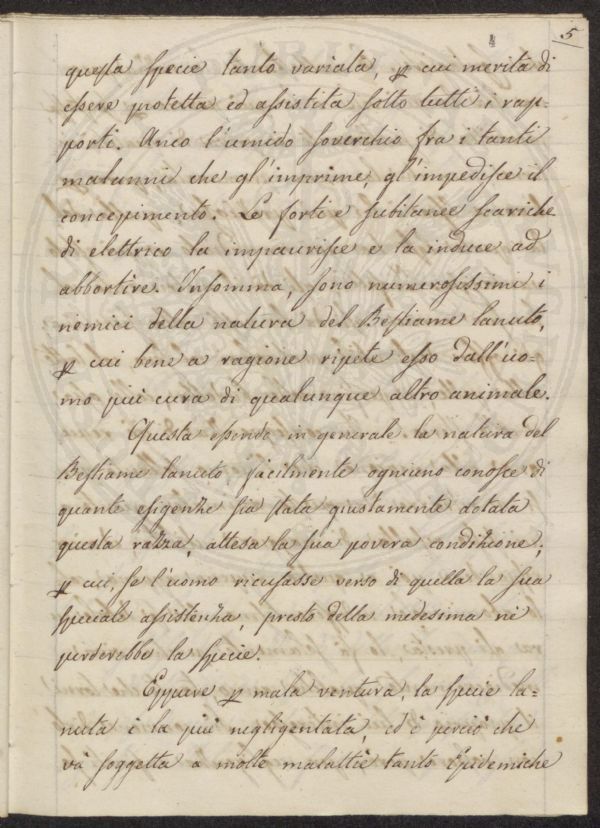 5
questa specie tanto variata, p cui merita di
essere protetta ed assistita sotto tutti i rap=
porti. Anco l'umido soverchio fra i tanti
malanni che gl'imprime, gl'impedisce il
concepimento. Le forti e subitanee scariche
di elettrico la impaurisce e la induce ad
abbortire. Insomma, sono numerosissimi i
nemici della natura del Bestiame lanuto,
p cui bene a ragione ripete esso dall'uo=
mo più cura di qualunque altro animale.
Questa essendo in generale la natura del
Bestiame lanuto, facilmente ogniuno conosce di
quante esigenze sia stata giustamente dotata
questa razza, attesa la sua povera condizione;
p cui, se l'uomo ricusasse verso di quella la sua
speciale assistenza, presto della medesima nè
perderebbe la specie.
Eppure p mala ventura, la specie la=
nuta è la più negligentata, ed è perciò che
và soggetta a molte malattie tanto Epidemiche